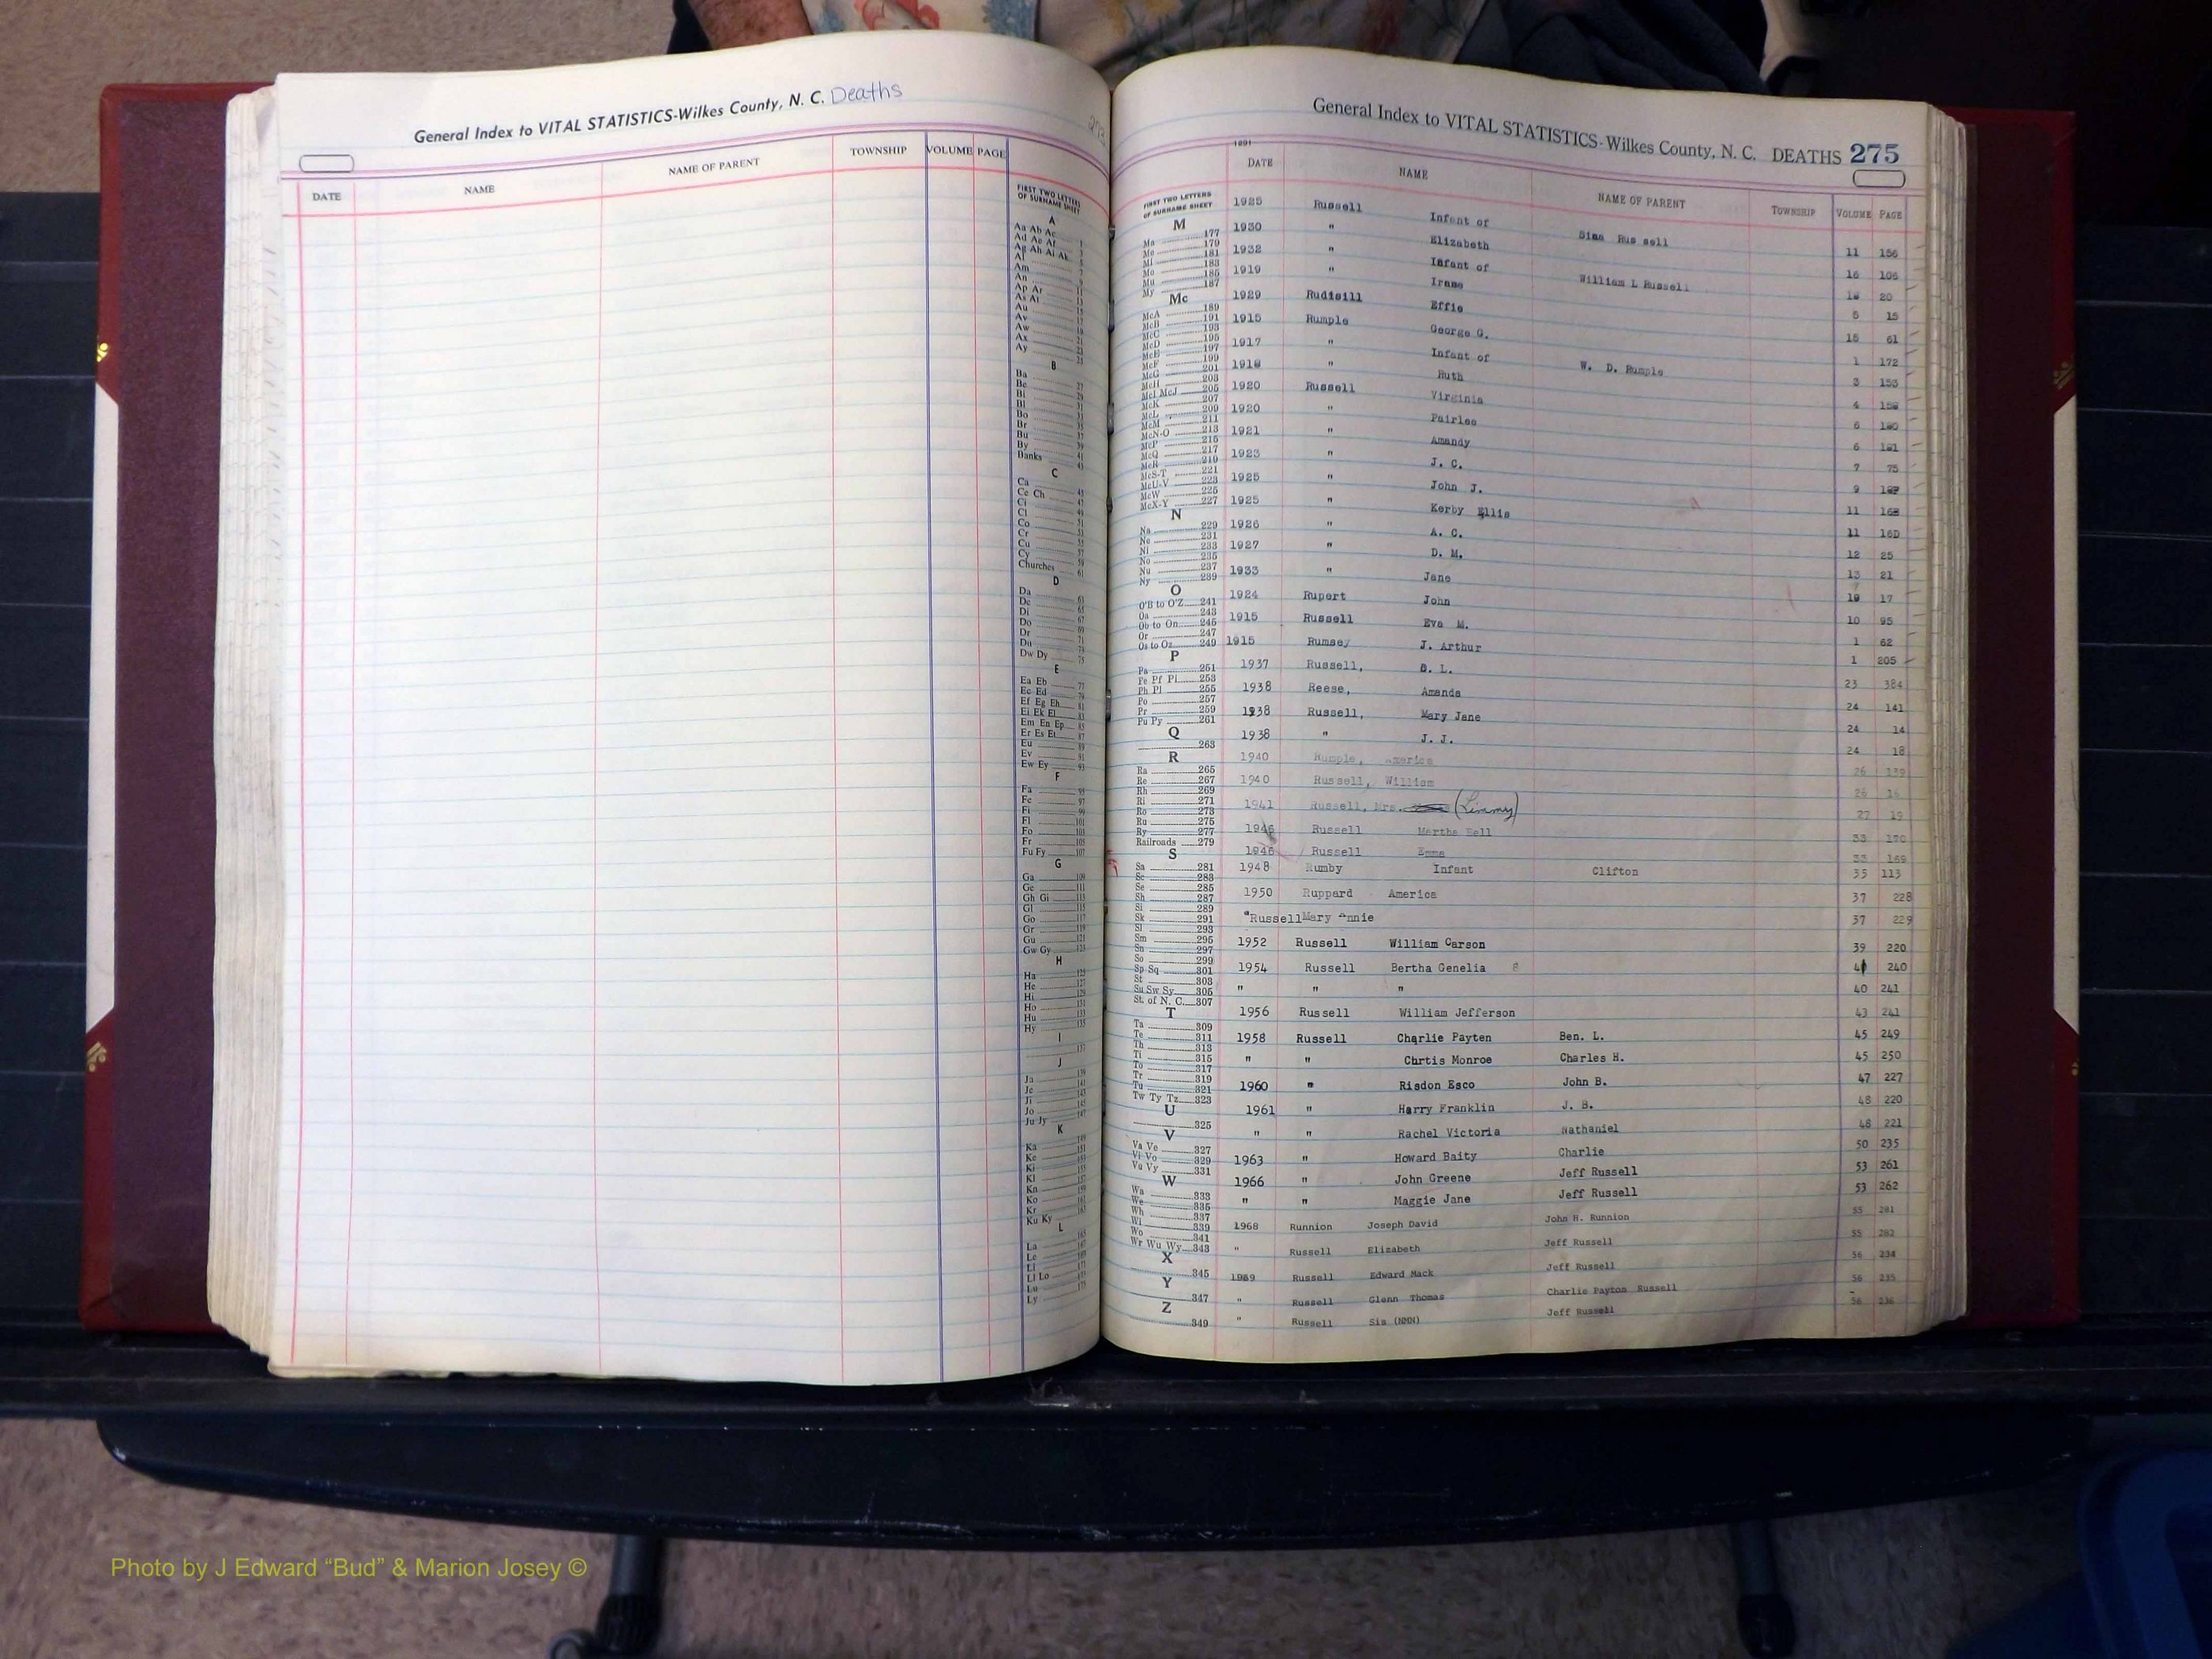 General Index to VITAL STATISTICS-Wilkes County, N. C. Deaths
DATE NAME NAME OF PARENT TOWNSHIP VOLUME PAGE
FIRST TWO LETTERS
OF SURNAME SHEET
A
Aa Ab Ac
Ad Ae Af
Ag Ah Ai Ak
Al
Am
An
Ap Ar
As At
Au
Av
Aw
Ax
Ay
B
Ba
Be
Bi
Bl
Bo
Br
Bu
By
Banks
C
Ca
Ce Ch
Ci
Cl
Co
Cr
Cu
Cy
Churches
D
Da
De
Di
Do
Dr
Du
Dw Dy
E
Ea Eb
Ec Ed
Ef Eg Eh
Ei Ek El
Em En Ep
Er Es Et
Eu
Ev
Ew Ey
F
Fa
Fe
Fi
Fl
Fo
Fr
Fu Fy
G
Ga
Ge
Gh Gi
Gl
Go
Gr
Gu
Gw Gy
H
Ha
He
Hi
Ho
Hu
Hy
I
J
Ja
Je
Ji
Jo
Ju Jy
K
Ka
Ke
Ki
Kl
Kn
Ko
Kr
Ku Ky
L
La
Le
Li
Ll Lo
Lu
Ly
General Index to VITAL STATISTICS-Wilkes County, N. C. DEATHS 275
DATE NAME NAME OF PARENT TOWNSHIP VOLUME PAGE
FIRST TWO LETTERS
OF SURNAME SHEET
M
Ma 177
Me 179
Mi 181
Mo 183
Mu 185
My 187
Mc
McA 189
McB 191
McC 193
McD 195
McE 197
McF 199
McG 201
McH 203
McI McJ 205
McK 207
McL 209
McM 211
McN-O 213
McP 215
McQ 217
McR 219
McS-T 221
McU-V 223
McW 225
McX-Y 227
N
Na 229
Ne 231
Ni 233
No 235
Nu 237
Ny 239
O
O'B to O'Z 241
Oa 243
Ob to On 245
Or 247
Os to Oz 249
P
Pa 251
Pe Pf Pi 253
Ph Pl 255
Po 257
Pr 259
Pu Py 261
Q
263
R
Ra 265
Re 267
Rh 269
Ri 271
Ro 273
Ru 275
Ry 277
Railroads 279
S
Sa 281
Sc 283
Se 285
Sh 287
Si 289
Sk 291
Sl 293
Sm 295
Sn 297
So 299
Sp Sq 301
St 303
Su Sw Sy 305
St. of N. C. 307
T
Ta 309
Te 311
Th 313
Ti 315
To 317
Tr 319
Tu 321
Tw Ty Tz 323
U
325
V
Va Ve 327
Vi Vo 329
Vu Vy 331
W
Wa 333
We 335
Wh 337
Wi 339
Wo 341
Wr Wu Wy 343
X
345
Y
347
Z
349
1925 Russell Infant of Sinn Rus sell 11 156
1930 " Elizabeth 16 106
1932 " Infant of William L Russell 20
1919 " Irene 5 15
1929 Rudisill Effie 15 61
1915 Rumple George G. 1 172
1917 " Infant of W. D. Rumple 3 153
1918 " Ruth 4
1920 Russell Virginia 6
1920 " Fairlee 6
1921 " Amandy 7 75
1923 " J. C. 9
1925 " John J. 11
1925 " Kerby Ellis 11
1926 " A. C. 12 25
1927 " D. M. 13 21
1933 " Jane 19 17
1924 Rupert John 10 95
1915 Russell Eva M. 1 62
1915 Rumsey J. Arthur 1 205
1937 Russell, L. 23 384
1938 Reese, Amanda 24 141
1938 Russell, Mary Jane 24 14
1938 " J. J. 24 18
1940 Rumple, America 26 139
1940 Russell, William 26 16
1941 Russell, Mrs. (Limmy) 27 19
1946 Russell Martha Bell 33 170
1946 Russell Emma 33 169
1948 Rumby Infant Clifton 35 113
1950 Ruppard America 37 228
" Russell Mary Annie 37 229
1952 Russell William Carson 39 220
1954 Russell Bertha Genelia 240
" " " 40 241
1956 Russell William Jefferson 43 241
1958 Russell Charlie Payten Ben. L. 45 249
" " Chrtis Monroe Charles H. 45 250
1960 " Risdon Esco John B. 47 227
1961 " Harry Franklin J. B. 48 220
" " Rachel Victoria Nathaniel 48 221
1963 " Howard Baity Charlie 50 235
1966 " John Greene Jeff Russell 53 261
" " Maggie Jane Jeff Russell 53 262
1968 Runnion Joseph David John H. Runnion 55 281
" Russell Elizabeth Jeff Russell 55 282
1969 Russell Edward Mack Jeff Russell 56 234
" Russell Glenn Thomas Charlie Payton Russell 56 235
" Russell Sis (NMN) Jeff Russell 56 236
Photo by J Edward “Bud” & Marion Josey ©